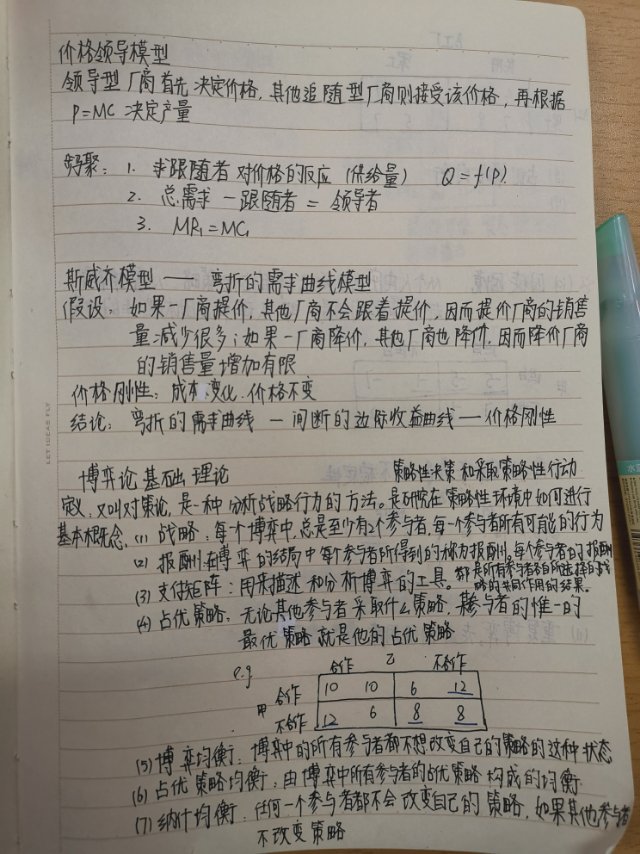 价格领导模型
领导型厂商首先决定价格，其他追随型厂商则接受该价格，再根据
P=MC 决定产量
1. 求跟随者对价格的反应（供给量） Q=f(P)
2. 总需求 — 跟随者 = 领导者
3. MR₁=MC₁
斯威齐模型 —— 弯折的需求曲线模型
假设：如果一厂商提价，其他厂商不会跟着提价，因而提价厂商的销售
量减少很多；如果一厂商降价，其他厂商也降价，因而降价厂商
的销售量增加有限
价格刚性：成本变化，价格不变
结论：弯折的需求曲线 — 间断的边际收益曲线 — 价格刚性
LET IDEAS FLY
博弈论基础理论
策略性决策和采取策略性行动
定义：又叫对策论，是一种分析战略行为的方法。是研究在策略性环境中如何进行
基本概念：(1) 战略：每个博弈中，总是至少有2个参与者，每一个参与者所有可能的行为
(2) 报酬：在博弈的结局中每个参与者所得到的称为报酬，每个参与者的报酬
都是所有参与者各自所选择的战
略的共同作用的结果。
(3) 支付矩阵：用来描述和分析博弈的工具。
(4) 占优策略：无论其他参与者采取什么策略，某参与者的惟一的
最优策略就是他的占优策略
e.g
乙
合作 不合作
甲 合作 10 10 6 12
不合作 12 6 8 8
(5) 博弈均衡：博弈中的所有参与者都不想改变自己的策略的这种状态
(6) 占优策略均衡：由博弈中所有参与者的占优策略构成的均衡
(7) 纳什均衡：任何一个参与者都不会改变自己的策略，如果其他参与者
不改变策略